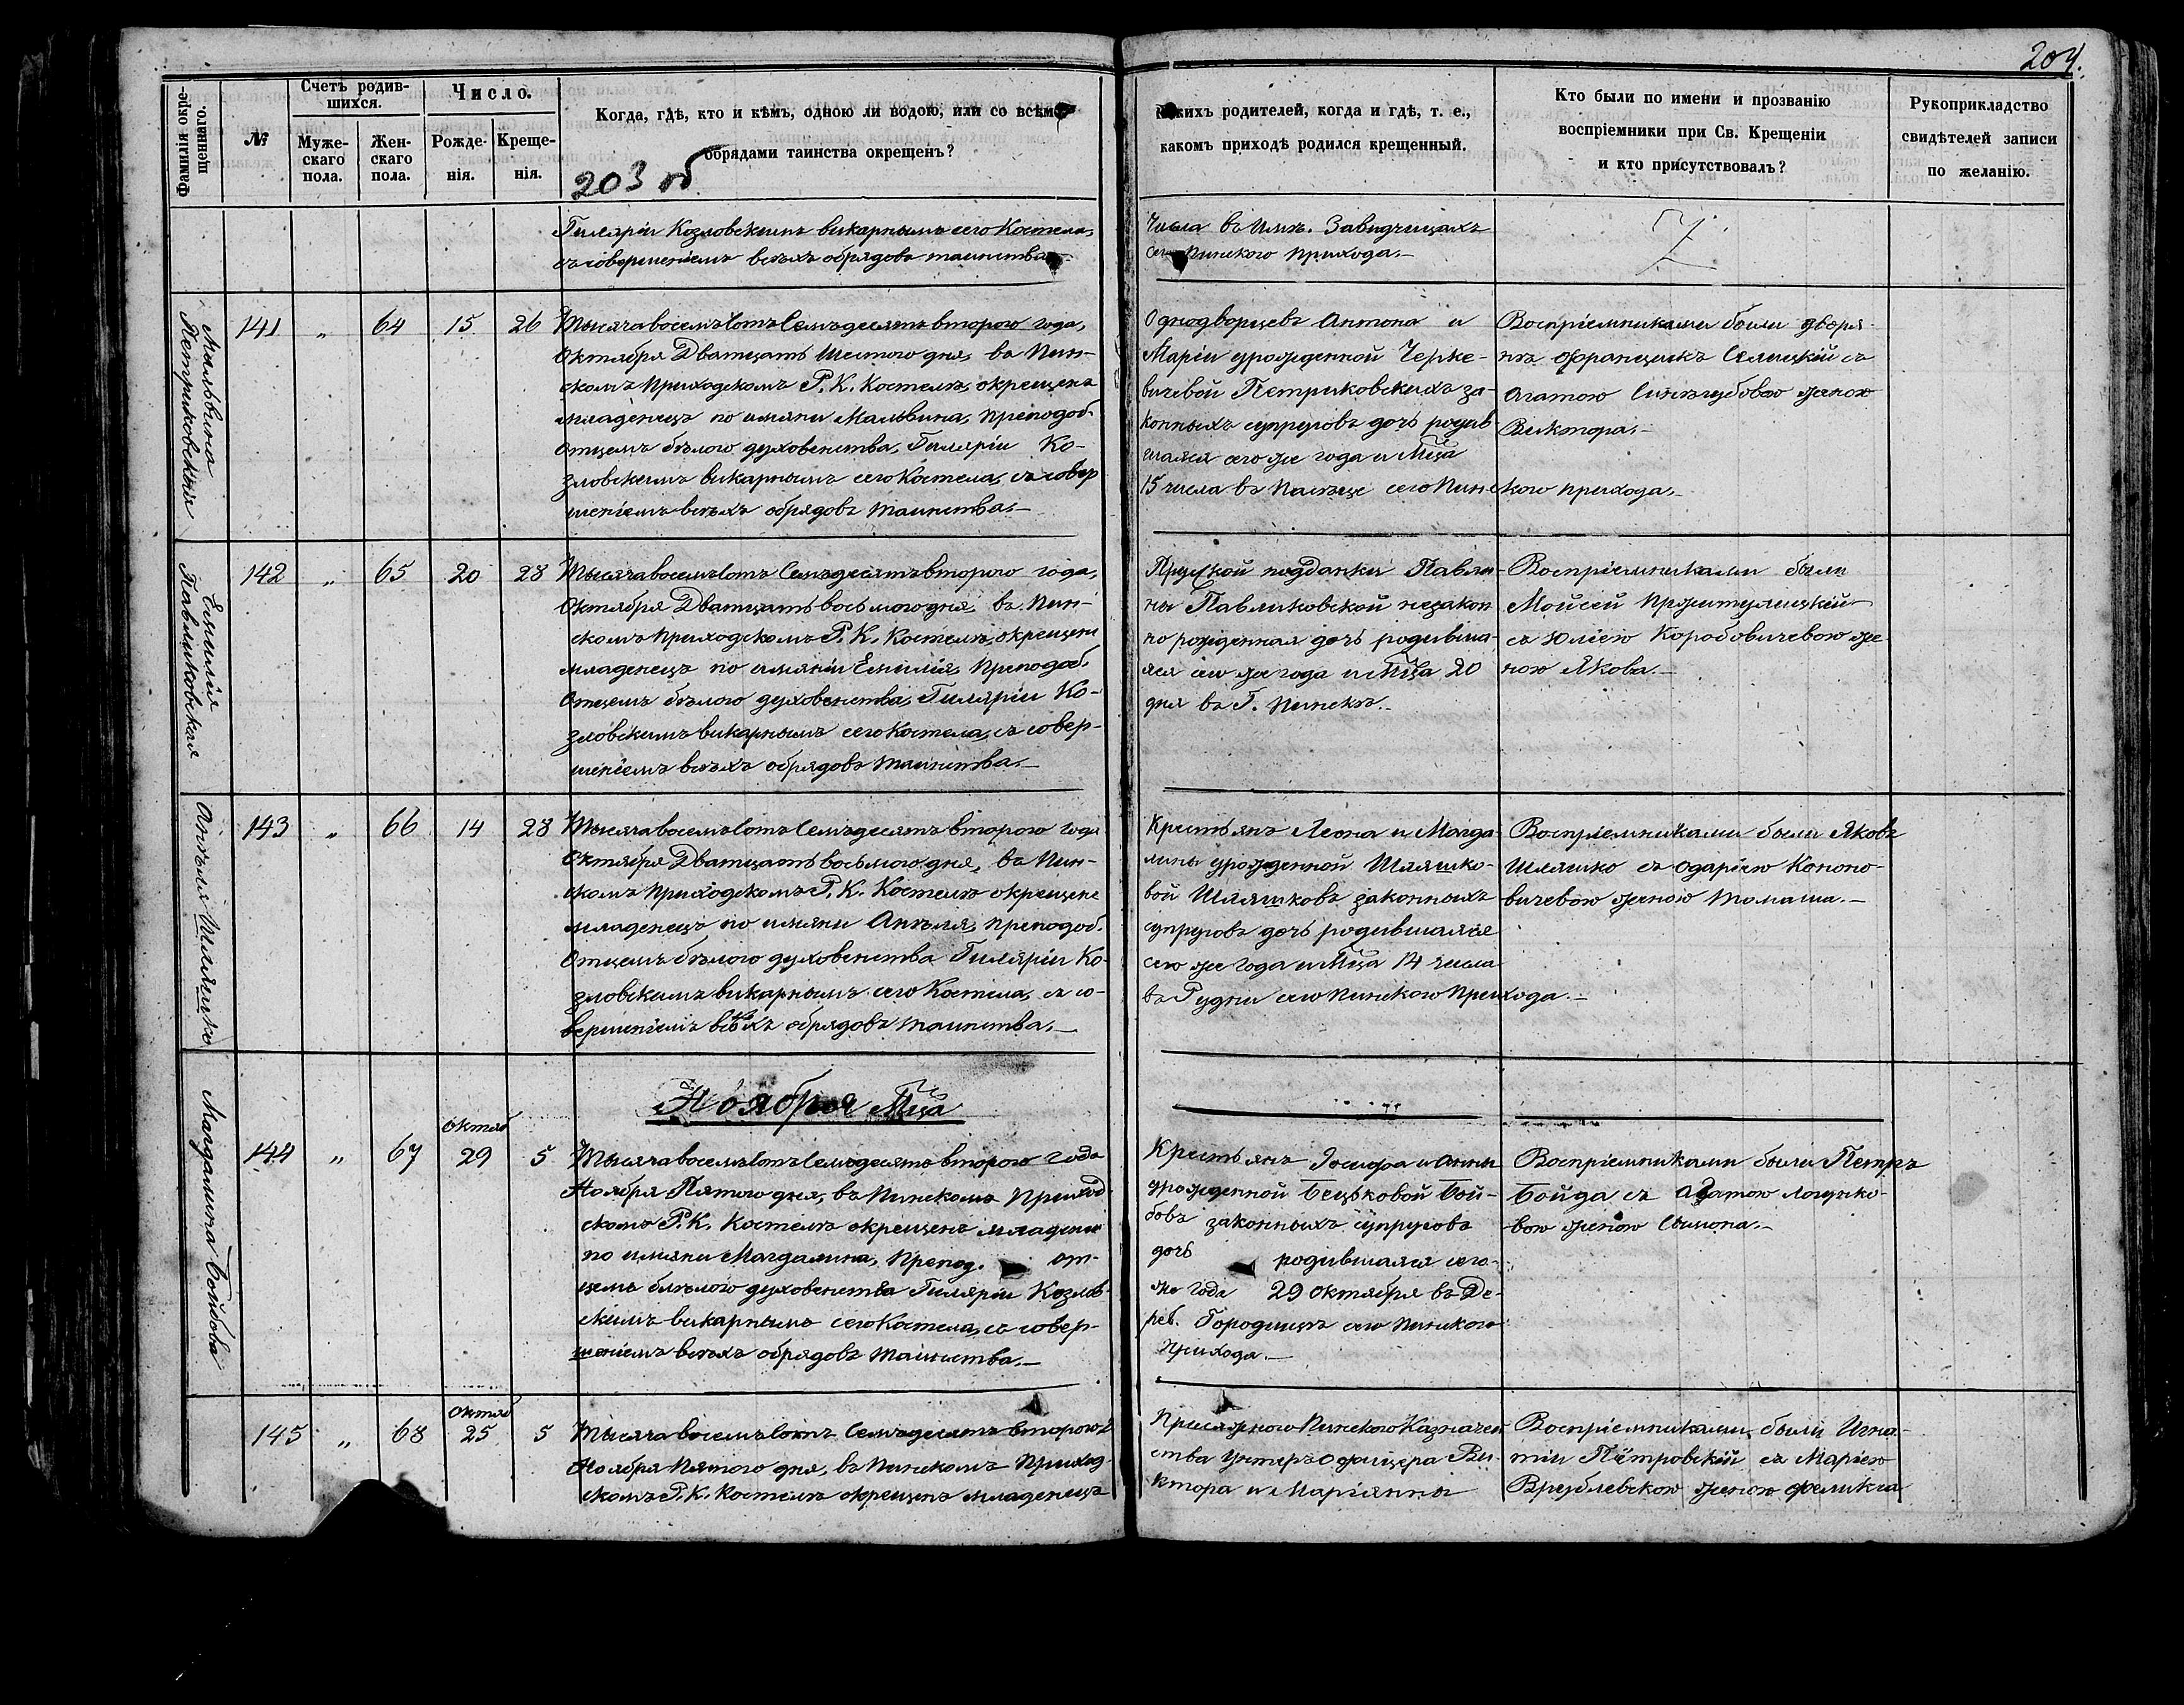 204.
Фамилія окре-
щеннаго.
№
Счетъ родив-
шихся.
Муже-
скаго
пола.
Жен-
скаго
пола.
Число.
Рожде-
нія.
Креще-
нія.
Когда, гдѣ, кто и кѣмъ, одною ли водою, или со всѣми
обрядами таинства окрещенъ?
203 об
Какихъ родителей, когда и гдѣ, т. е.,
какомъ приходѣ родился крещенный.
Кто были по имени и прозванію
воспріемники при Св. Крещеніи
и кто присутствовалъ?
Рукоприкладство
свидѣтелей записи
по желанію.
Гиляріи Козловскимъ викарнымъ сего Костела,
съ совершеніемъ всѣхъ обрядовъ таинства
числа въ Имѣ. Завидчицахъ
сего Пинского прихода.—
Мальвина
Петриковскія
141 „ 64 15 26
Тысяча восемъ сотъ Семъдесятъ второго года,
Октября Дватцать Шестого дня, въ Пин-
скомъ Приходскомъ Р. К. Костелѣ, окрещенъ
младенецъ по имяни Мальвина, Преподоб.
Отцемъ бѣлого духовенства, Гиляріи Ко-
зловскимъ викарнымъ сего Костела, съ совер
шеніемъ всѣхъ обрядовъ таинства.—
Однодворцевъ Антона и
Маріи урожденной Черке-
вичевой Петриковскихъ за-
конныхъ супруговъ дочь родив
шаяся сего же года и Мца
15 числа въ сего Пинского прихода.—
Воспріемниками были дворя-
нъ Францишкъ съ
Агатою женою
Виктора.—
Емилія
Павлиновская
142 „ 65 20 28
Тысяча восемъ сотъ Семъдесятъ второго года,
Октября Дватцать восьмого дня, въ Пин-
скомъ Приходскомъ Р. К. Костелѣ, окрещенъ
младенецъ по имяни Емилія, Преподоб.
Отцемъ бѣлого духовенства, Гиляріи Ко-
зловскимъ викарнымъ сего Костела, съ совер-
шеніемъ всѣхъ обрядовъ таинства.—
Прусской подданки Павли-
ны Павлиновской незакон
но рожденная дочь родивша-
яся сего же года и Мца 20
дня въ Г. Пинскѣ.—
Воспріемниками были
Мойсей
съ Юліею Коробовичевою же-
ною Якова.—
Анѣля Шляшко
143 „ 66 14 28
Тысяча восемъ сотъ Семъдесятъ второго года
Октября Дватцать восьмого дня, въ Пин-
скомъ Приходскомъ Р. К. Костелѣ окрещенъ
младенецъ по имяни Анѣля, Преподоб.
Отцемъ бѣлого духовенства Гиляріи Ко-
зловскимъ викарнымъ сего Костела, съ со-
вершеніемъ всѣхъ обрядовъ таинства.—
Крестьянъ Леона и Магда-
лины урожденной Шляшко-
вой Шляшковъ законныхъ
супруговъ дочь родившаяся
сего же года и Мца 14 числа
въ Рудни сего Пинского Прихода.—
Воспріемниками были Яковъ
Шляшко съ Одаріею Конoно-
вичевою женою Томаша.—
Ноября Мца
Магдалина Бойдова
144 „ 67 Октяб 29 5
Тысяча восемъ сотъ Семъдесятъ второго года
Ноября Пятого дня, въ Пинскомъ Приход
скомъ Р. К. Костелѣ окрещенъ младенец
по имяни Магдалина, Препод. от-
цемъ бѣлого духовенства Гиляріи Козлов-
скимъ викарнымъ сего Костела, съ совер-
шеніемъ всѣхъ обрядовъ таинства.—
Крестьянъ Іосифа и Анны
урожденной Бецьковой Бой-
довъ законныхъ супруговъ
дочь родившаяся сего-
же года 29 Октября въ Де-
рев. Городищѣ сего Пинского
Прихода.—
Воспріемниками были Петръ
Бойда съ Агатою
вою женою Сымона.—
145 „ 68 Октяб 25 5
Тысяча восемъ сотъ Семъдесятъ второго г.
Ноября Пятого дня, въ Пинскомъ Приход-
скомъ Р. К. Костелѣ окрещенъ младенецъ
Присяжного Пинского Казначей
ства Унтеръ Офицера Ви-
ктора и Маріянны
Воспріемниками были Игна-
тій Петровскій съ Маріею
Врублевскою женою Феликса